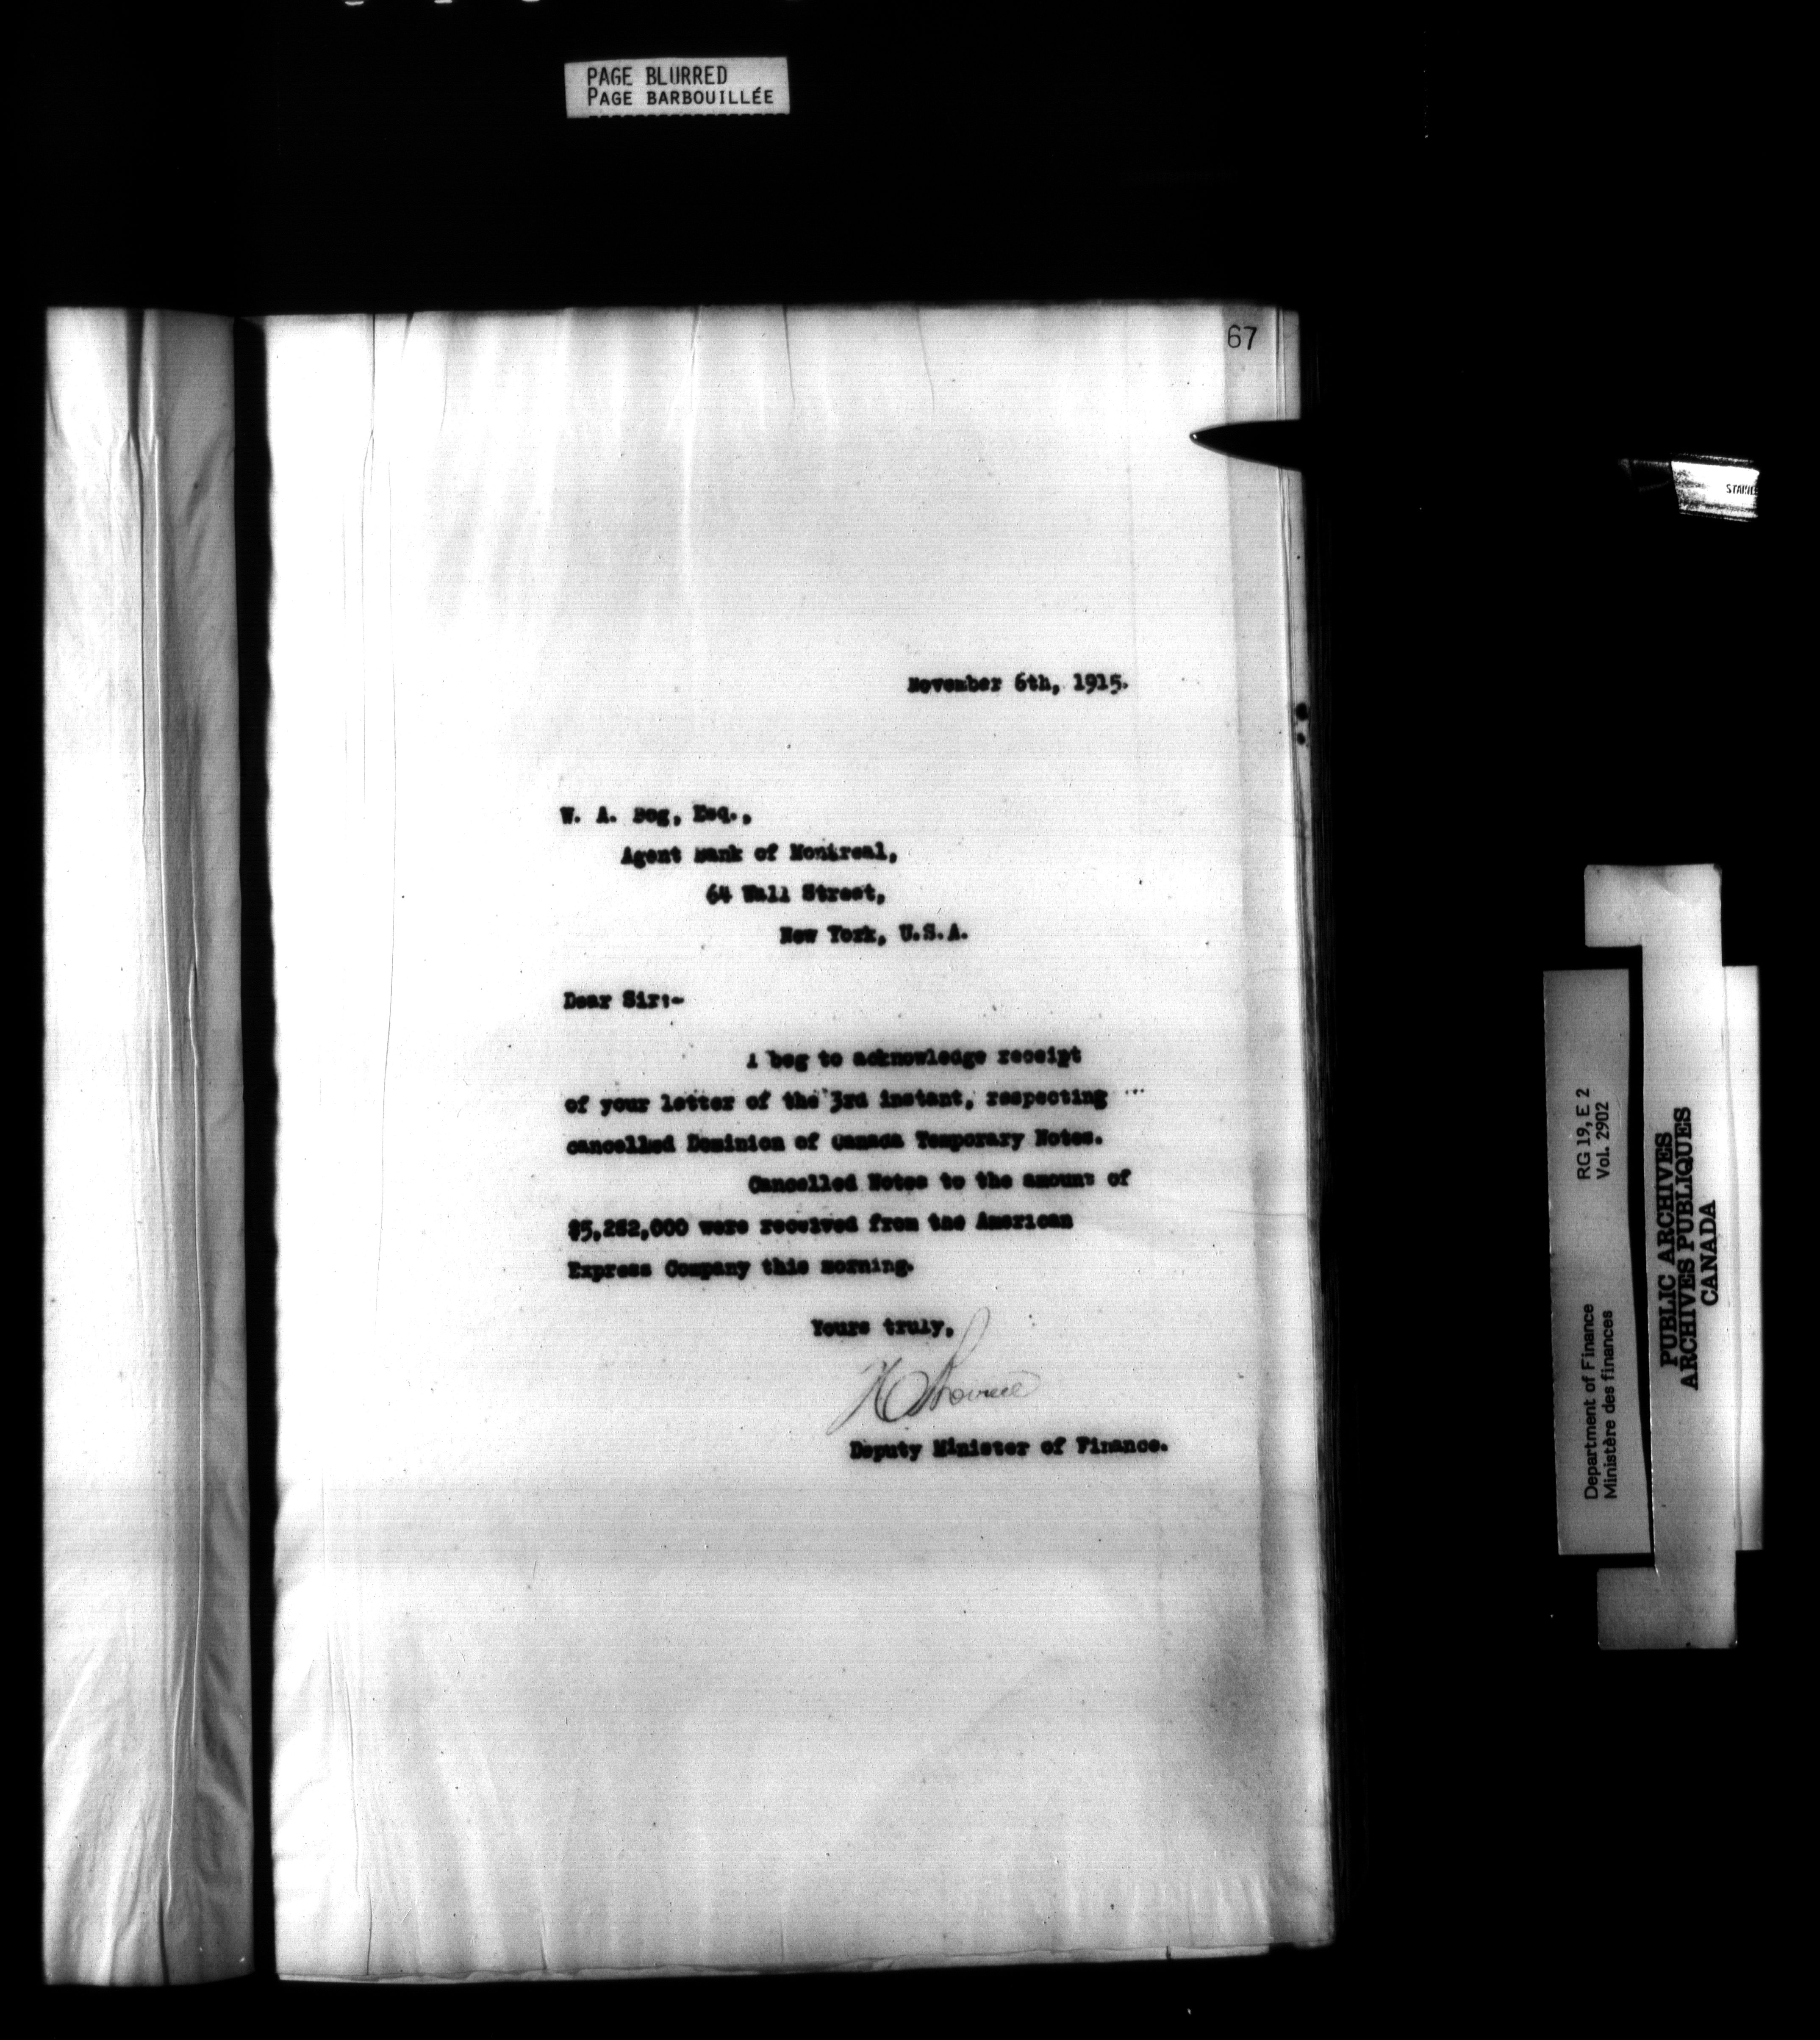 PAGE BLURRED
PAGE BARBOUILLÉE
67
November 6th, 1915.
W. A. Bog, Esq.,
Agent Bank of Montreal,
64 Wall Street,
New York, U.S.A.
Dear Sir:-
I beg to acknowledge receipt
of your letter of the 3rd instant, respecting
cancelled Dominion of Canada Temporary Notes.
Cancelled Notes to the amount of
were received from the American
Express Company this morning.
Yours truly,
Deputy Minister of Finance.
Department of Finance RG 19, E 2
Ministère des finances Vol. 2902
PUBLIC ARCHIVES
ARCHIVES PUBLIQUES
CANADA